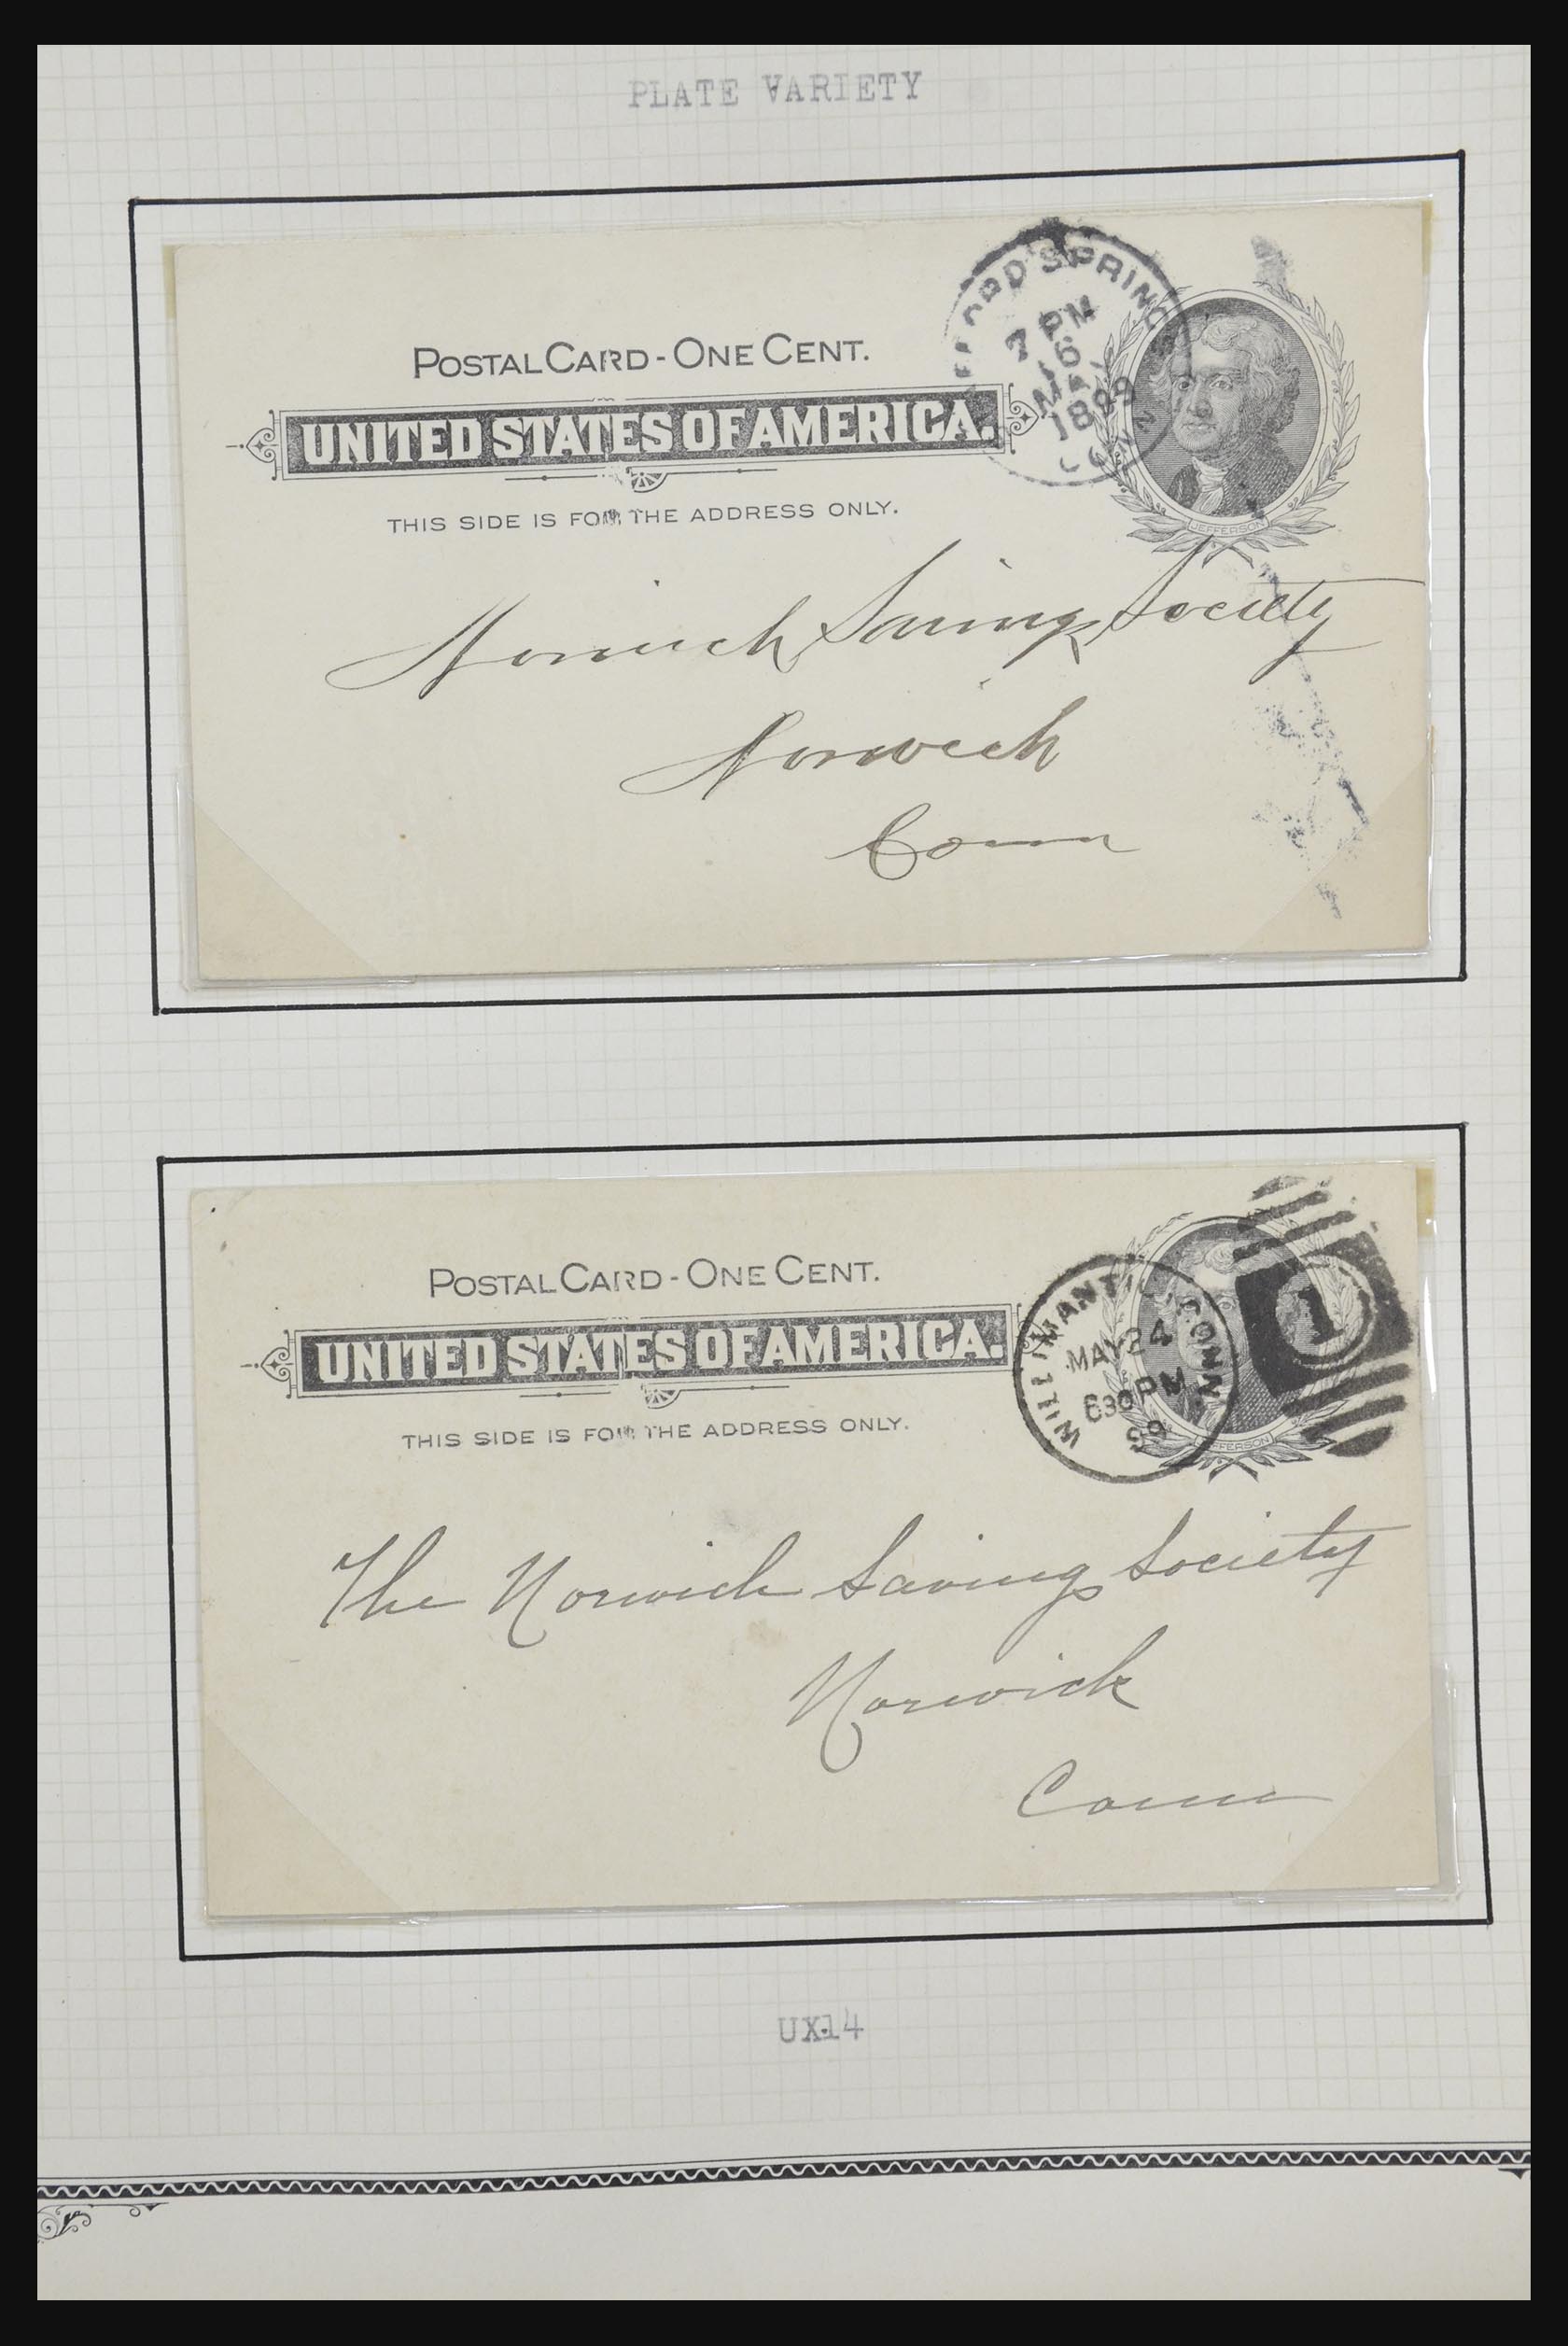 PLATE VARIETY
POSTAL CARD - ONE CENT.
UNITED STATES OF AMERICA.
THIS SIDE IS FOR THE ADDRESS ONLY.
FORD SPRING
7 PM
16
MAY
1899
CONN
JEFFERSON
Norwich Savings Society
Norwich
Conn
POSTAL CARD - ONE CENT.
UNITED STATES OF AMERICA.
THIS SIDE IS FOR THE ADDRESS ONLY.
WILLIMANTIC, CONN.
MAY 24
630 PM
99
1
JEFFERSON
The Norwich Savings Society
Norwich
Conn
UX14